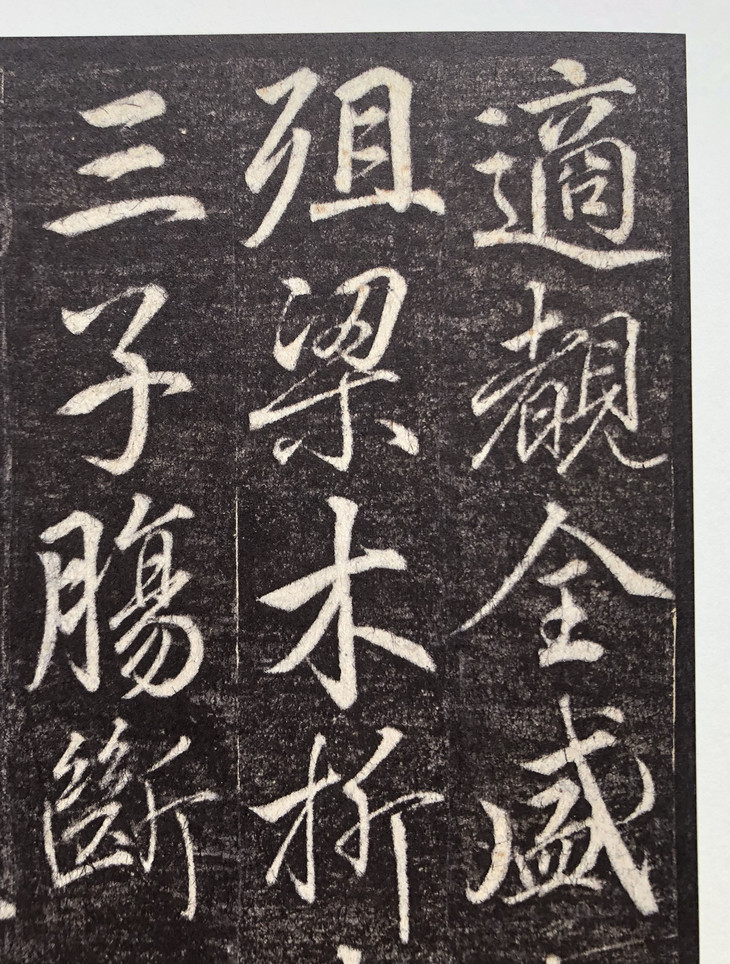 適覩全盛
殂梁木折
三子腸斷